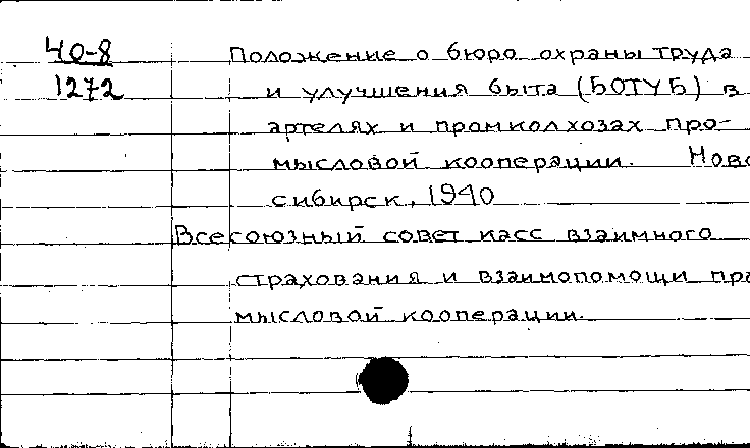 40-8
1272
Положение о бюро охраны труда
и улучшения быта (БОТУБ) в
артелях и промколхозах про-
мысловой кооперации. Ново
сибирск, 1940
Всесоюзный совет касс взаимного
страхования и взаимопомощи про
мысловой кооперации.